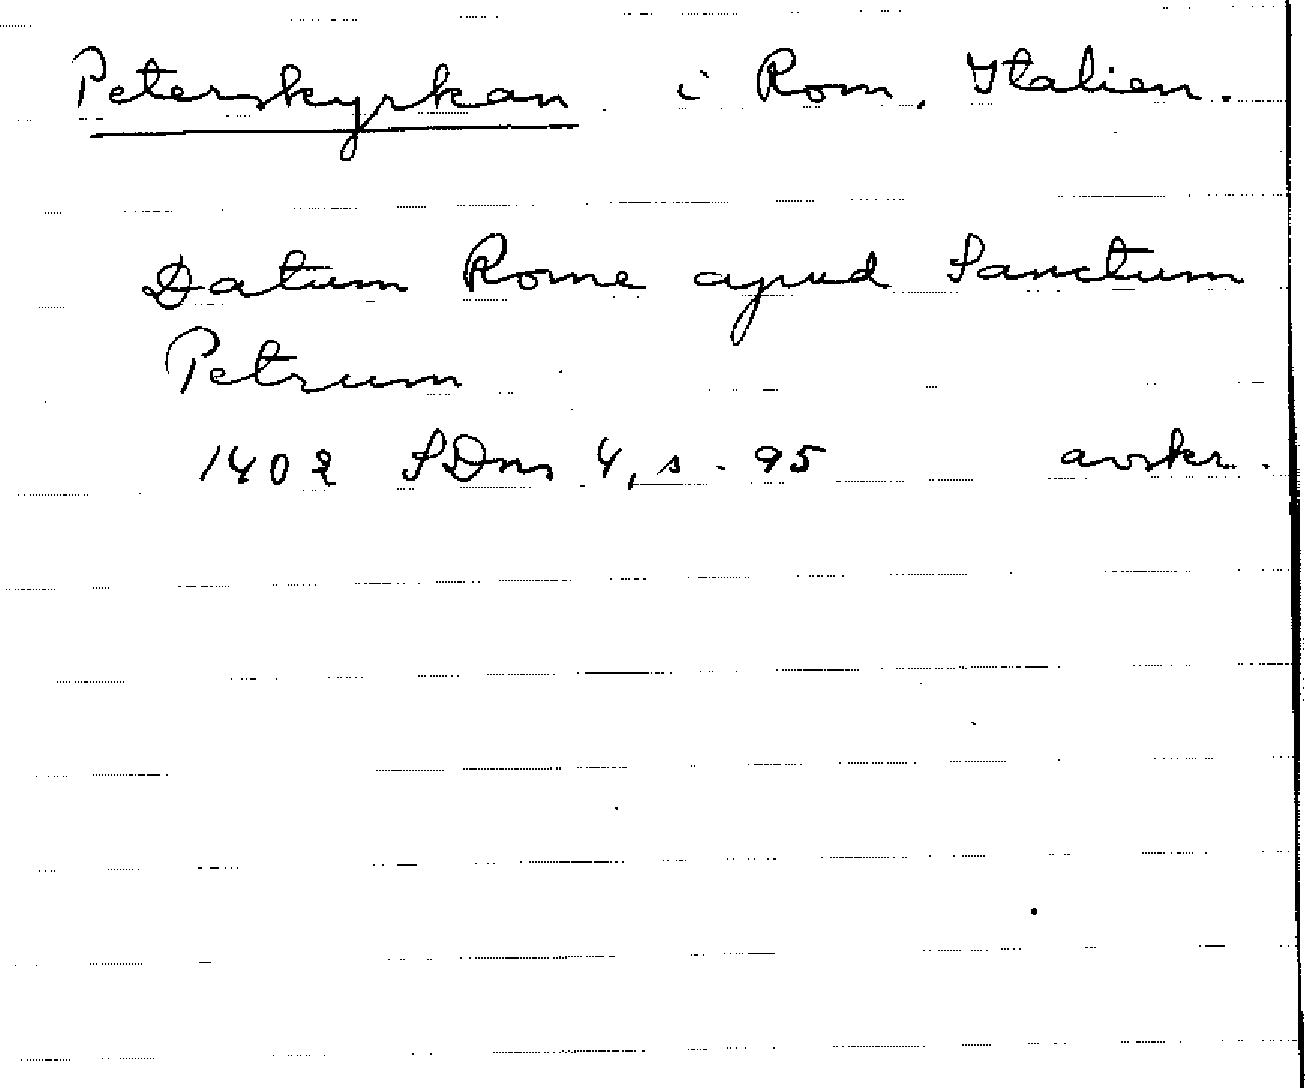 Peterskyrkan i Rom, Italien.
Datum Rome apud Sanctum
Petrum
1402 SDns 4, s. 95 avskr.